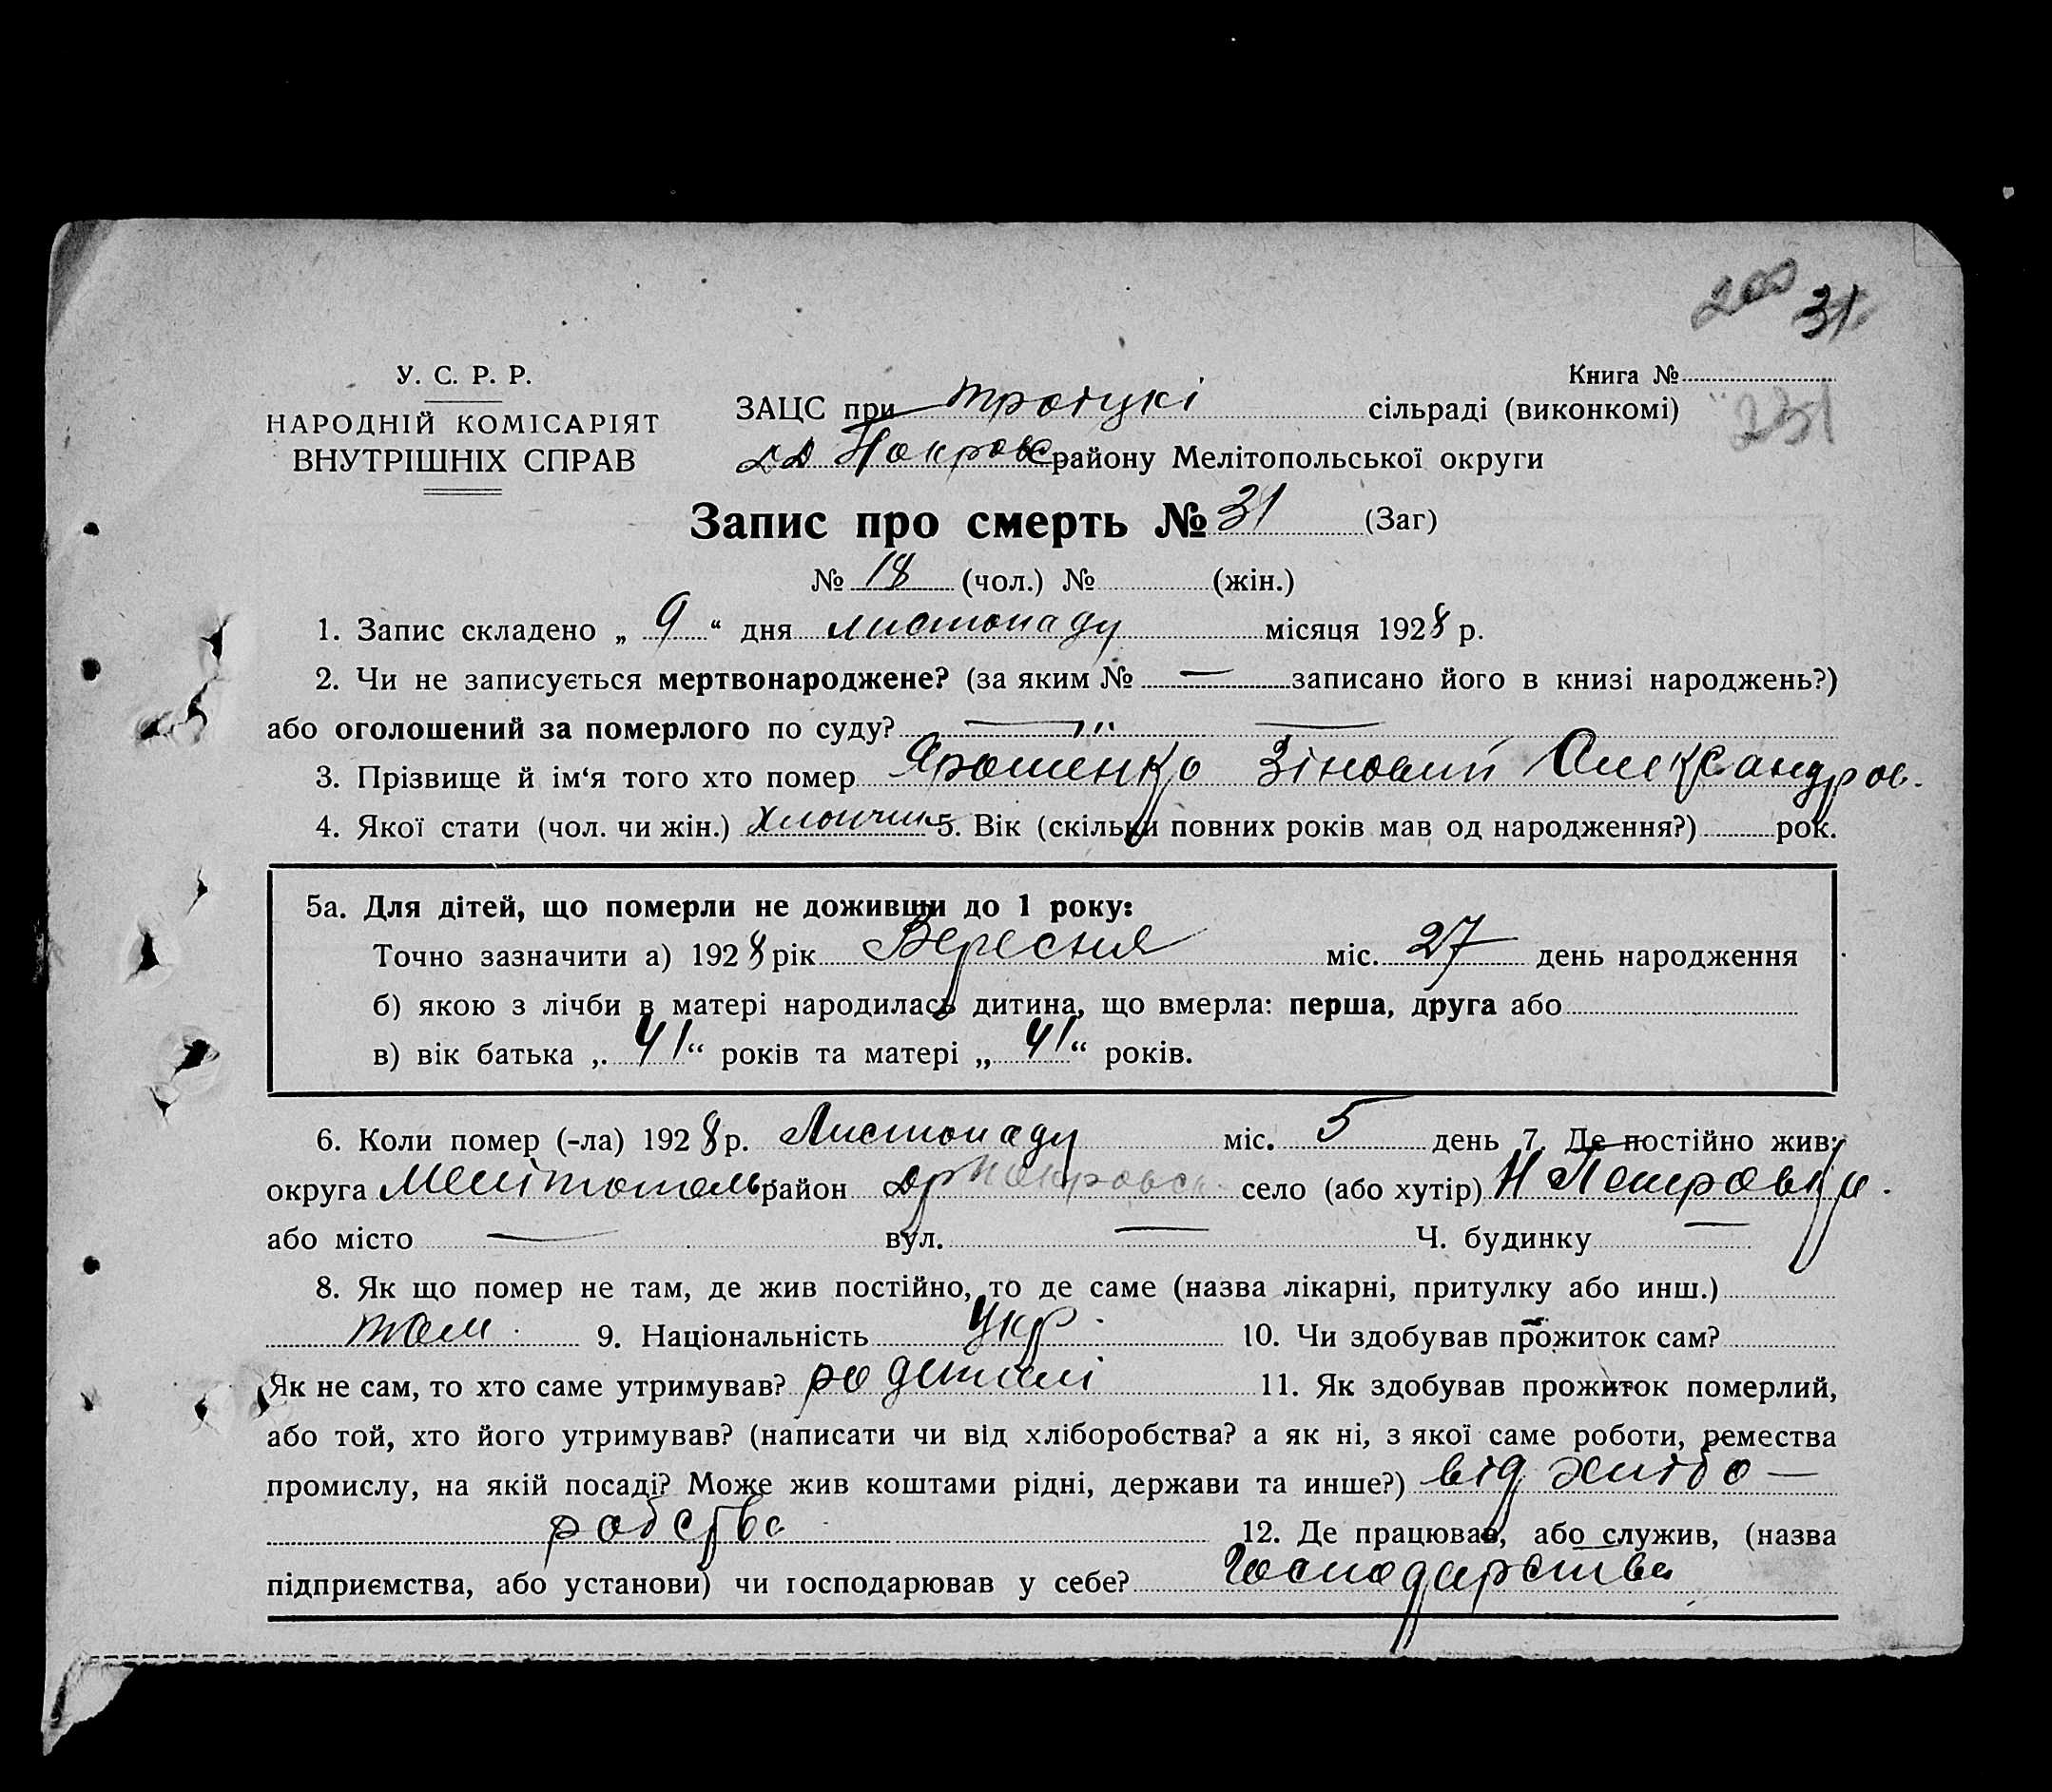 31
У. С. Р. Р.
НАРОДНІЙ КОМІСАРІЯТ
ВНУТРІШНІХ СПРАВ
Книга №
231
ЗАЦС при Троіцкі сільраді (виконкомі)
Покровс району Мелітопольської округи
Запис про смерть № 31 (Заг)
№ 18 (чол.) № (жін.)
1. Запис складено „ 9 “ дня листопаду місяця 1928 р.
2. Чи не записується мертвонароджене? (за яким № — записано його в книзі народжень?)
або оголошений за померлого по суду? — —
3. Прізвище й ім‘я того хто помер Ярошенко Зіновий Олександров.
4. Якої стати (чол. чи жін.) Хлопчик 5. Вік (скільки повних років мав од народження?) рок.
5а. Для дітей, що померли не доживши до 1 року:
Точно зазначити а) 1928 рік Вересня міс. 27 день народження
б) якою з лічби в матері народилась дитина, що вмерла: перша, друга або
в) вік батька „ 41 “ років та матері „ 41 “ років.
6. Коли помер (-ла) 1928 р. Листопаду міс. 5 день 7. Де постійно жив:
округа Мелітополь район покровськ село (або хутір) Н Петровку.
або місто — вул. — Ч. будинку —
8. Як що помер не там, де жив постійно, то де саме (назва лікарні, притулку або инш.)
там. 9. Національність Укр. 10. Чи здобував прожиток сам?
Як не сам, то хто саме утримував? родителі 11. Як здобував прожиток померлий,
або той, хто його утримував? (написати чи від хліборобства? а як ні, з якої саме роботи, ремества
промислу, на якій посаді? Може жив коштами рідні, держави та инше?) від хлібо—
робства 12. Де працював, або служив, (назва
підприємства, або установи) чи господарював у себе? Господарства